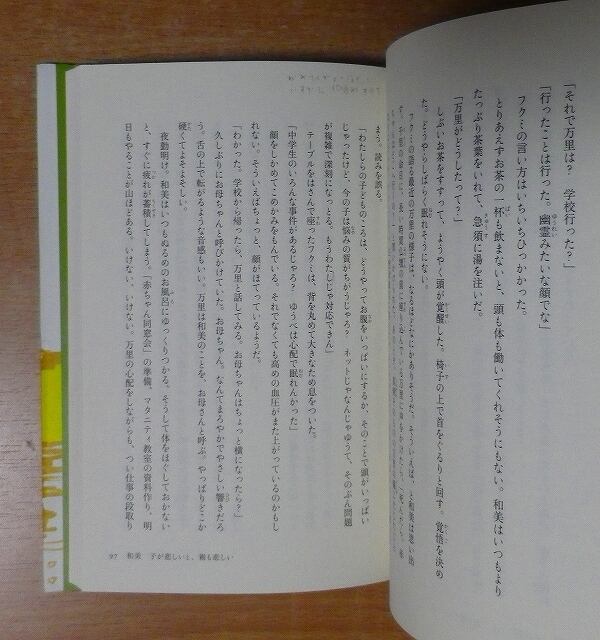 「それで万里は？　学校行った？」
「行ったことは行った。幽霊みたいな顔でな」
フクミの言い方はいちいちひっかかった。
とりあえずお茶の一杯も飲まないと、頭も体も働いてくれそうにもない。和美はいつもより
たっぷり茶葉をいれて、急須に湯を注いだ。
「万里がどうしたって？」
しぶいお茶をすすって、ようやく頭が覚醒した。椅子の上で首をぐるりと回す。覚悟を決め
た。どうやらしばらく眠れそうにない。
フクミの語る最近の万里の様子は、
そういえば、と和美は思い出
まう。読みを誤る。
「わたしらの子どものころは、どうやってお腹をいっぱいにするか、そのことで頭がいっぱい
じゃったけど、今の子は悩みの質がちがうじゃろ？　ネットじゃなんじゃゆうて、そのぶん問題
が複雑で深刻になっとる。もうわたしじゃ対応できん」
テーブルをはさんで座ったフクミは、背を丸めて大きなため息をついた。
「中学生のいろんな事件があるじゃろ？　ゆうべは心配で眠れんかった」
顔をしかめてこめかみをもんでいる。それでなくても高めの血圧がまた上がっているのかもし
れない。そういえばちょっと、顔がほてっているようだ。
「わかった。学校から帰ったら、万里と話してみる。お母ちゃんはちょっと横になったら？」
久しぶりにお母ちゃんと呼びかけていた。お母ちゃん。なんてまろやかでやさしい響きだろ
う。舌の上で転がるような音感もいい。万里は和美のことを、お母さんと呼ぶ。やっぱりどこか
硬くてよそよそしい。
夜勤明け。和美はいつもぬるめのお風呂にゆっくりつかる。そうして体をほぐしておかない
と、すぐに疲れが蓄積してしまう。「赤ちゃん同窓会」の準備、マタニティ教室の資料作り、明
日もやることが山ほどある。いけない、いけない。万里の心配をしながらも、つい仕事の段取り
97　和美　子が悲しいと、親も悲しい